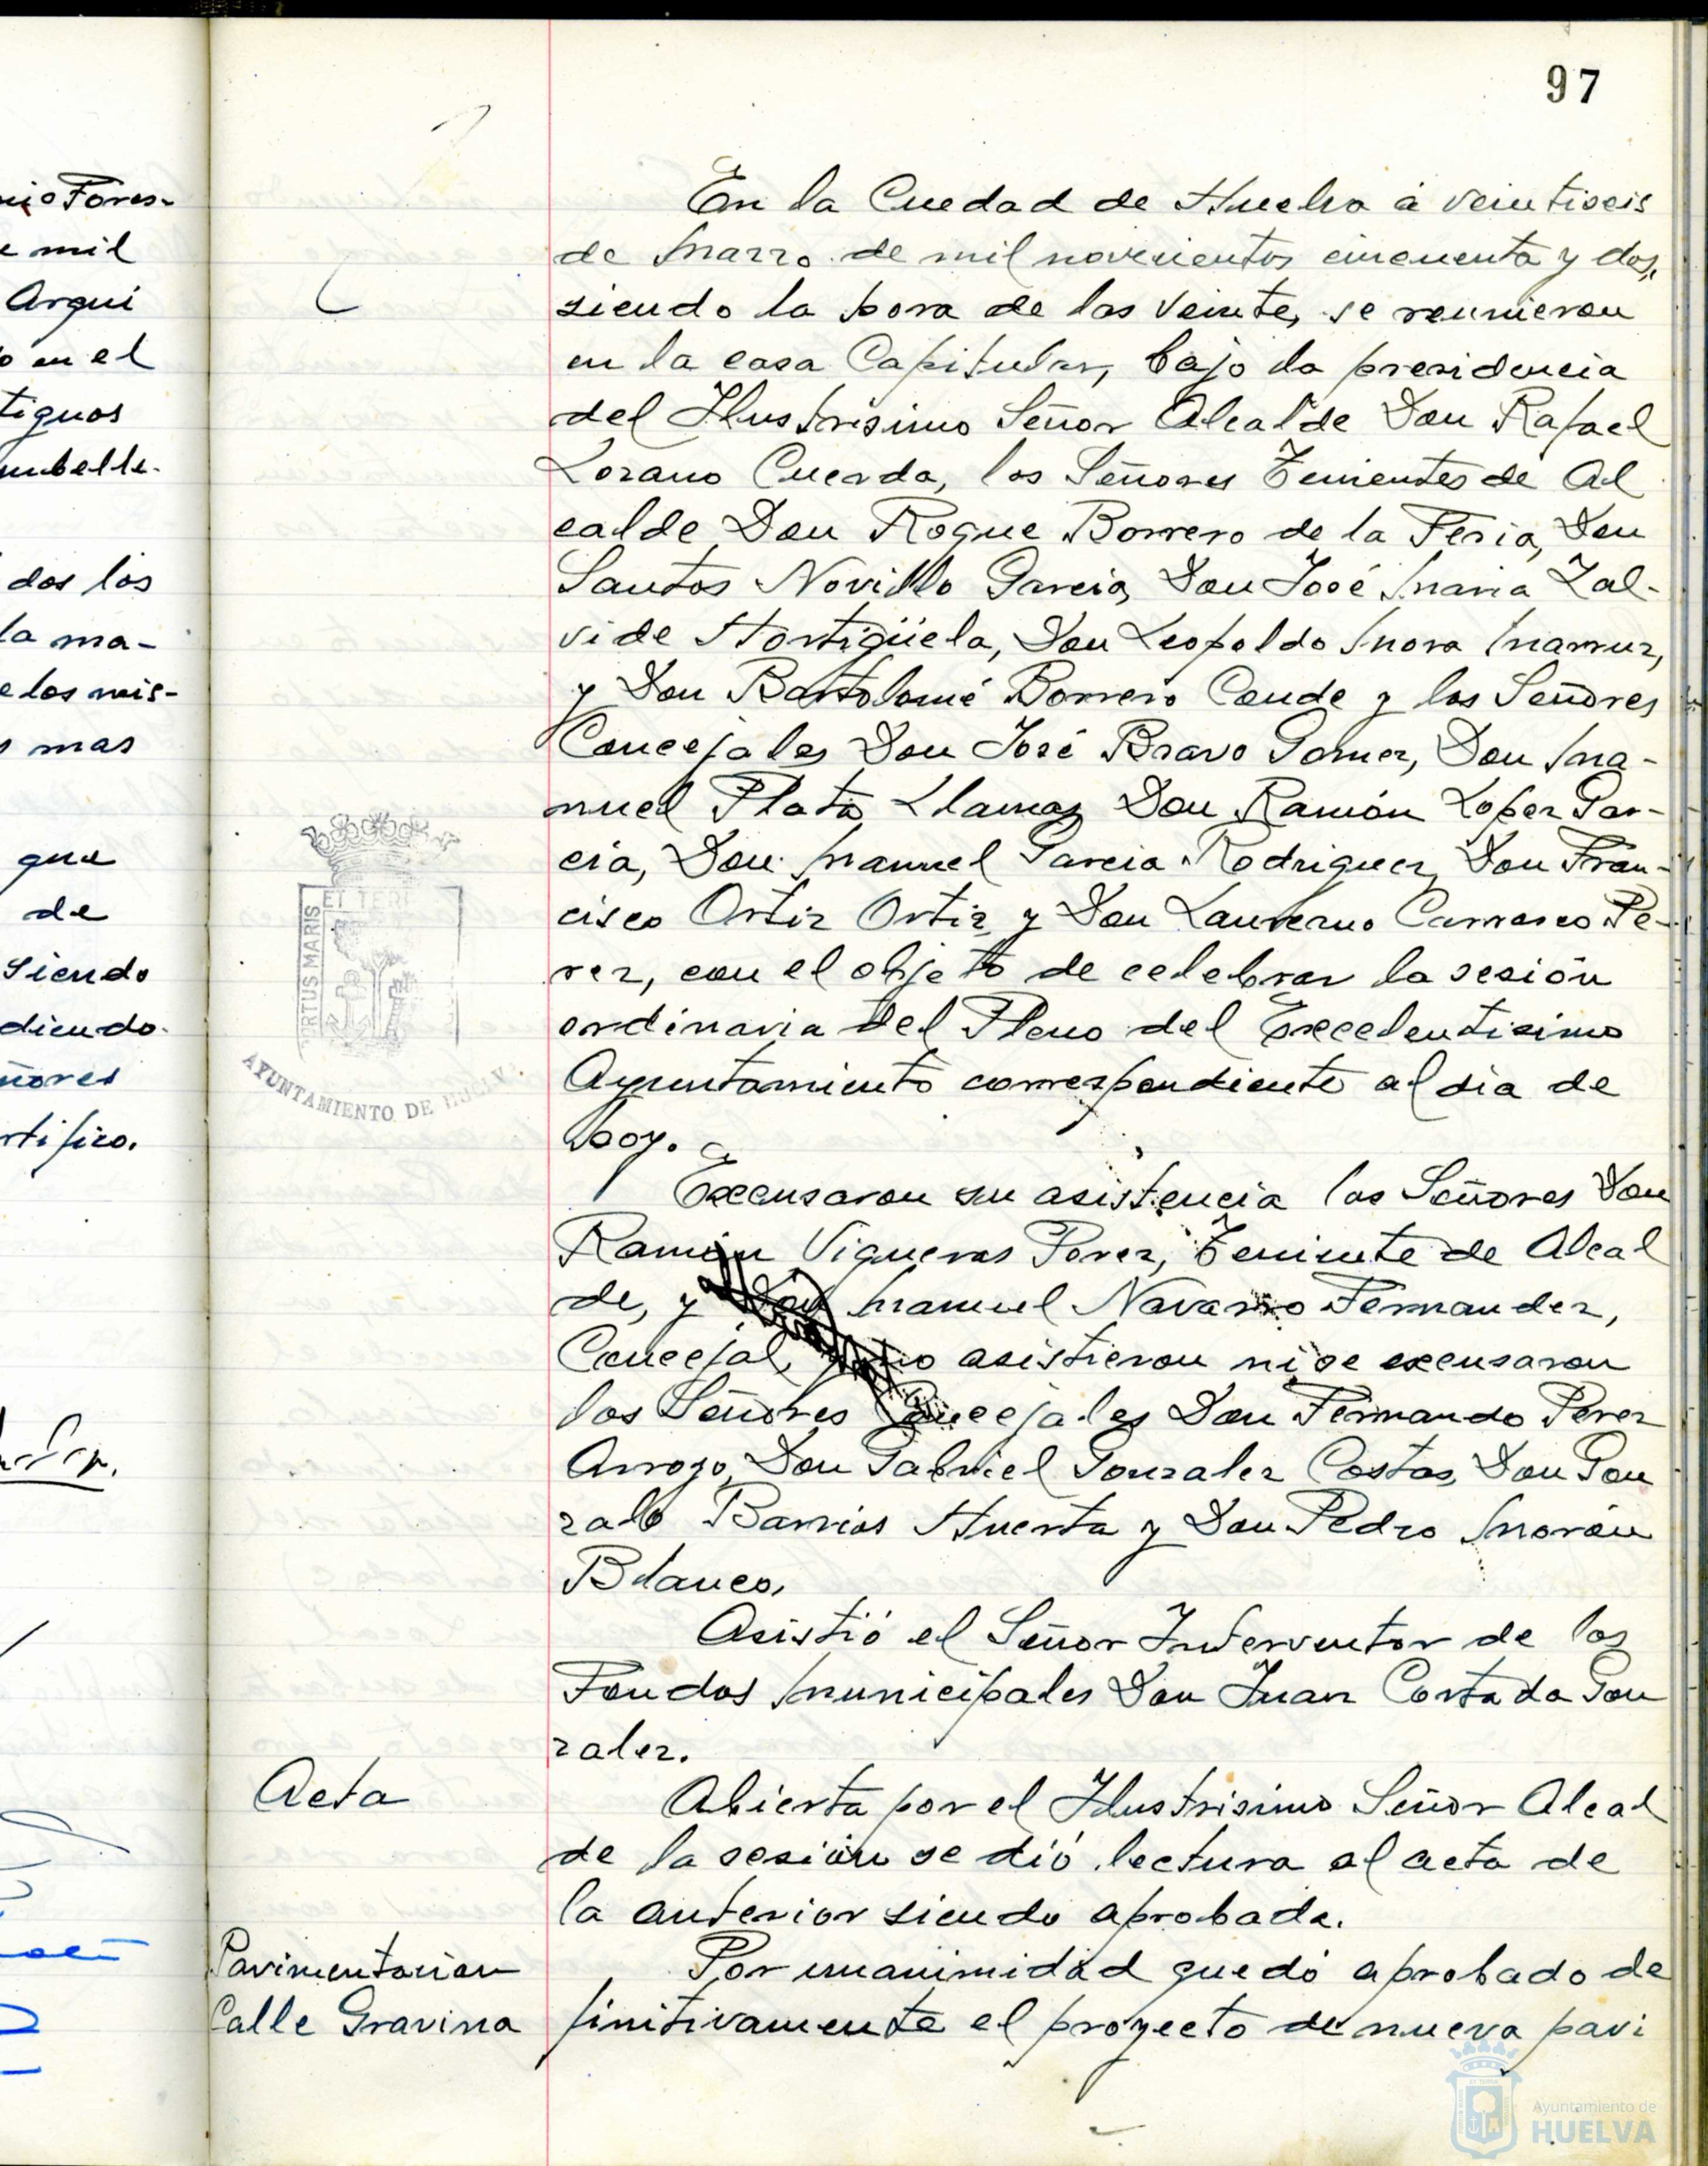 97
nio Fores-
e mil
Arqui
o en el
tiguos
mbelle-
dos los
la ma-
e los mis-
s mas
que
de
siendo
diendo
ñores
rtifico.
En la Ciudad de Huelva á veintiseis
de Marzo de mil novecientos cincuenta y dos,
siendo la hora de las veinte, se reunieron
en la casa Capitular, bajo la presidencia
del Ilustrisimo Señor Alcalde Don Rafael
Lozano Cuerda, los Señores Tenientes de Al
calde Don Roque Borrero de la Feria, Don
Santos Novillo Garcia, Don José Maria Zal-
vide Hortigüela, Don Leopoldo Mora Marruz,
y Don Bartolomé Borrero Conde y los Señores
Concejales Don José Bravo Gomez, Don Ma-
nuel Plata Llamas Don Ramón Lopez Gar-
cia, Don Manuel Garcia Rodriguez, Don Fran-
cisco Ortiz Ortiz y Don Laureano Carrasco Pe-
rez, con el objeto de celebrar la sesión
ordinaria del Pleno del Excelentisimo
Ayuntamiento correspondiente al dia de
hoy.
Excusaron su asistencia los Señores Don
Ramón Vigueras Perez, Teniente de Alcal
de, y Don Manuel Navarro Fernandez,
Concejal, y no asistieron ni se excusaron
los Señores Concejales Don Fernando Perez
Arroyo, Don Gabriel Gonzalez Costas, Don Gon
zalo Barrios Huerta y Don Pedro Morón
Blanco.
Asistió el Señor Interventor de los
Fondos Municipales Don Juan Cortada Gon
zalez.
Acta
Abierta por el Ilustrisimo Señor Alcal
de la sesión se dió lectura al acta de
la anterior siendo aprobada.
Pavimentación
Calle Gravina
Por unanimidad quedó aprobado de
finitivamente el proyecto de nueva pavi
ET TERR
RTUS MARIS
AYUNTAMIENTO DE HUELVA
Ayuntamiento de
HUELVA